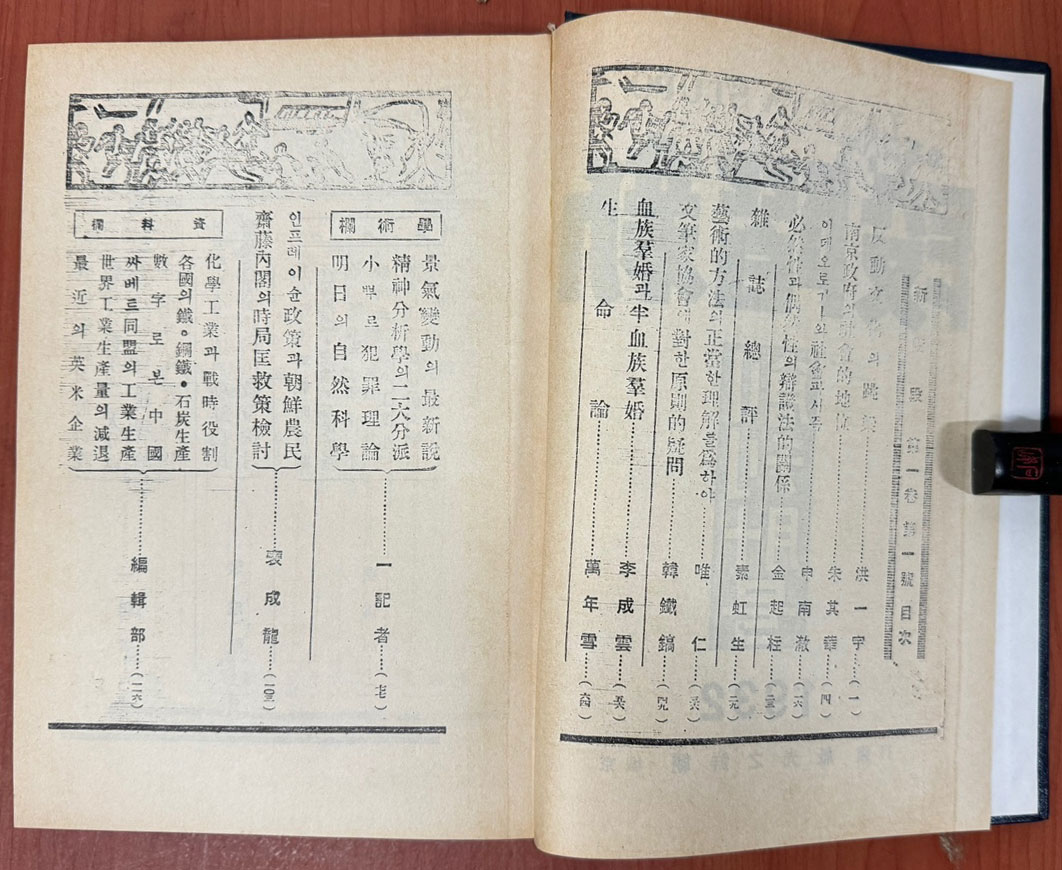 新階段 第一卷 第一號 目次
反動文學의 跳梁 洪一宇 (一)
南京政府의 社會的地位 朱其華 (四)
이데오로기—와 社會교사주 申南澈 (六)
必然性과 偶然性의 辯證法的關係 金起桂
雜誌總評 素虹生 (元)
藝術的方法의 正當한 理解를 爲하야 唯仁
文筆家協會에 對한 原則的疑問 韓鐵鎬 (四九)
血族羣婚과 半血族羣婚 李成雲
生命論 萬年雪 (六四)
學術欄
景氣變動의 最新說
精神分析學의 二大分派
小뿌르 犯罪理論
明日의 自然科學
一記者 (七七)
인프레이슌政策과 朝鮮農民
齋藤內閣의 時局匡救策檢討
裵成龍 (一〇三)
資料欄
化學工業과 戰時役割
各國의 鐵•鋼鐵•石炭生產
數字로 본 中國
싸베트同盟의 工業生產
世界工業生產量의 減退
最近의 英米企業
編輯部 (一二六)